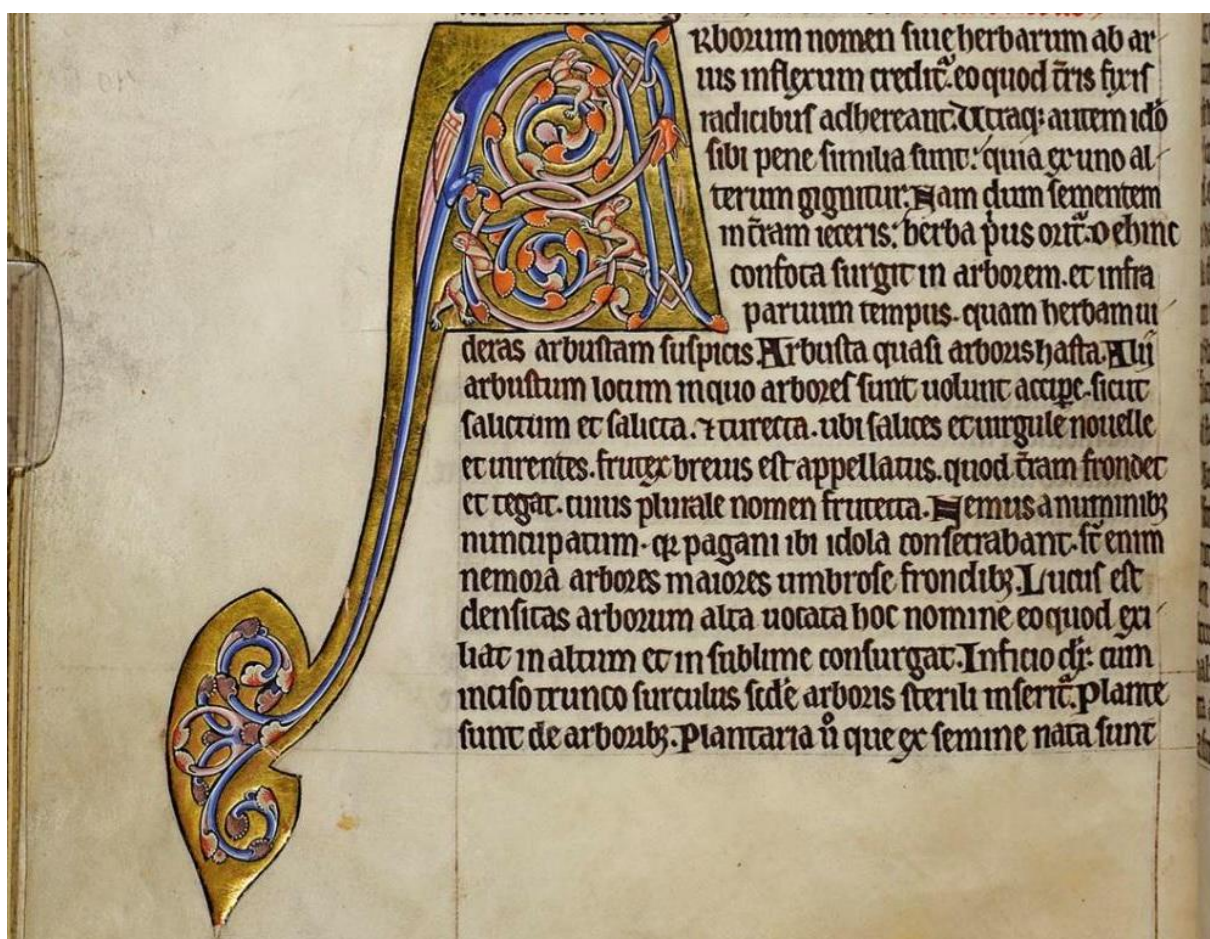 Arborum nomen siue herbarum ab ar
uis inflexum creditur eo quod tris fixis
radicibus adhereant. Utraq; autem ido
sibi pene similia sunt: quia ex uno al
terum gignitur. Nam dum sementem
in tram ieceris: herba pus orit. Dehinc
confota surgit in arborem. et infra
paruum tempus. quam herbam ui
deras arbustam suspicis. Arbusta quasi arboris hasta. Alij
arbustum locum in quo arbores sunt uolunt accipe. sicut
salictum et salicta. ⁊ turecta. ubi salices et uirgule nouelle
et uirentes. frutex breuis est appellatus. quod tram frondet
et tegat. cuius plurale nomen frutecta. Nemus a numinibꝫ
nuncupatum. qꝛ pagani ibi idola consecrabant. st enim
nemora arbores maiores umbrose frondibꝫ. Lucus est
densitas arborum alta uocata hoc nomine eo quod exi
liat in altum et in sublime consurgat. Inficio dr: cum
inciso trunco surculus fcde arboris sterili inserit. Plante
sunt de arboribꝫ. Plantaria ů que ex semine nata sunt